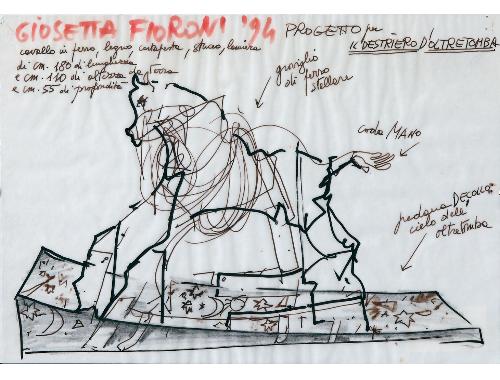 GIOSETTA FIORONI '94
PROGETTO per
IL DESTRIERO D'OLTRETOMBA
cavallo in ferro, legno, cartapesta, stucco, lamiera
di cm. 180 di lunghezza
e cm. 110 di altezza da terra
e cm. 55 di profondità
groviglio
di ferro
stellare
coda MANO
pedana DECOLLO
cielo dell'
oltretomba